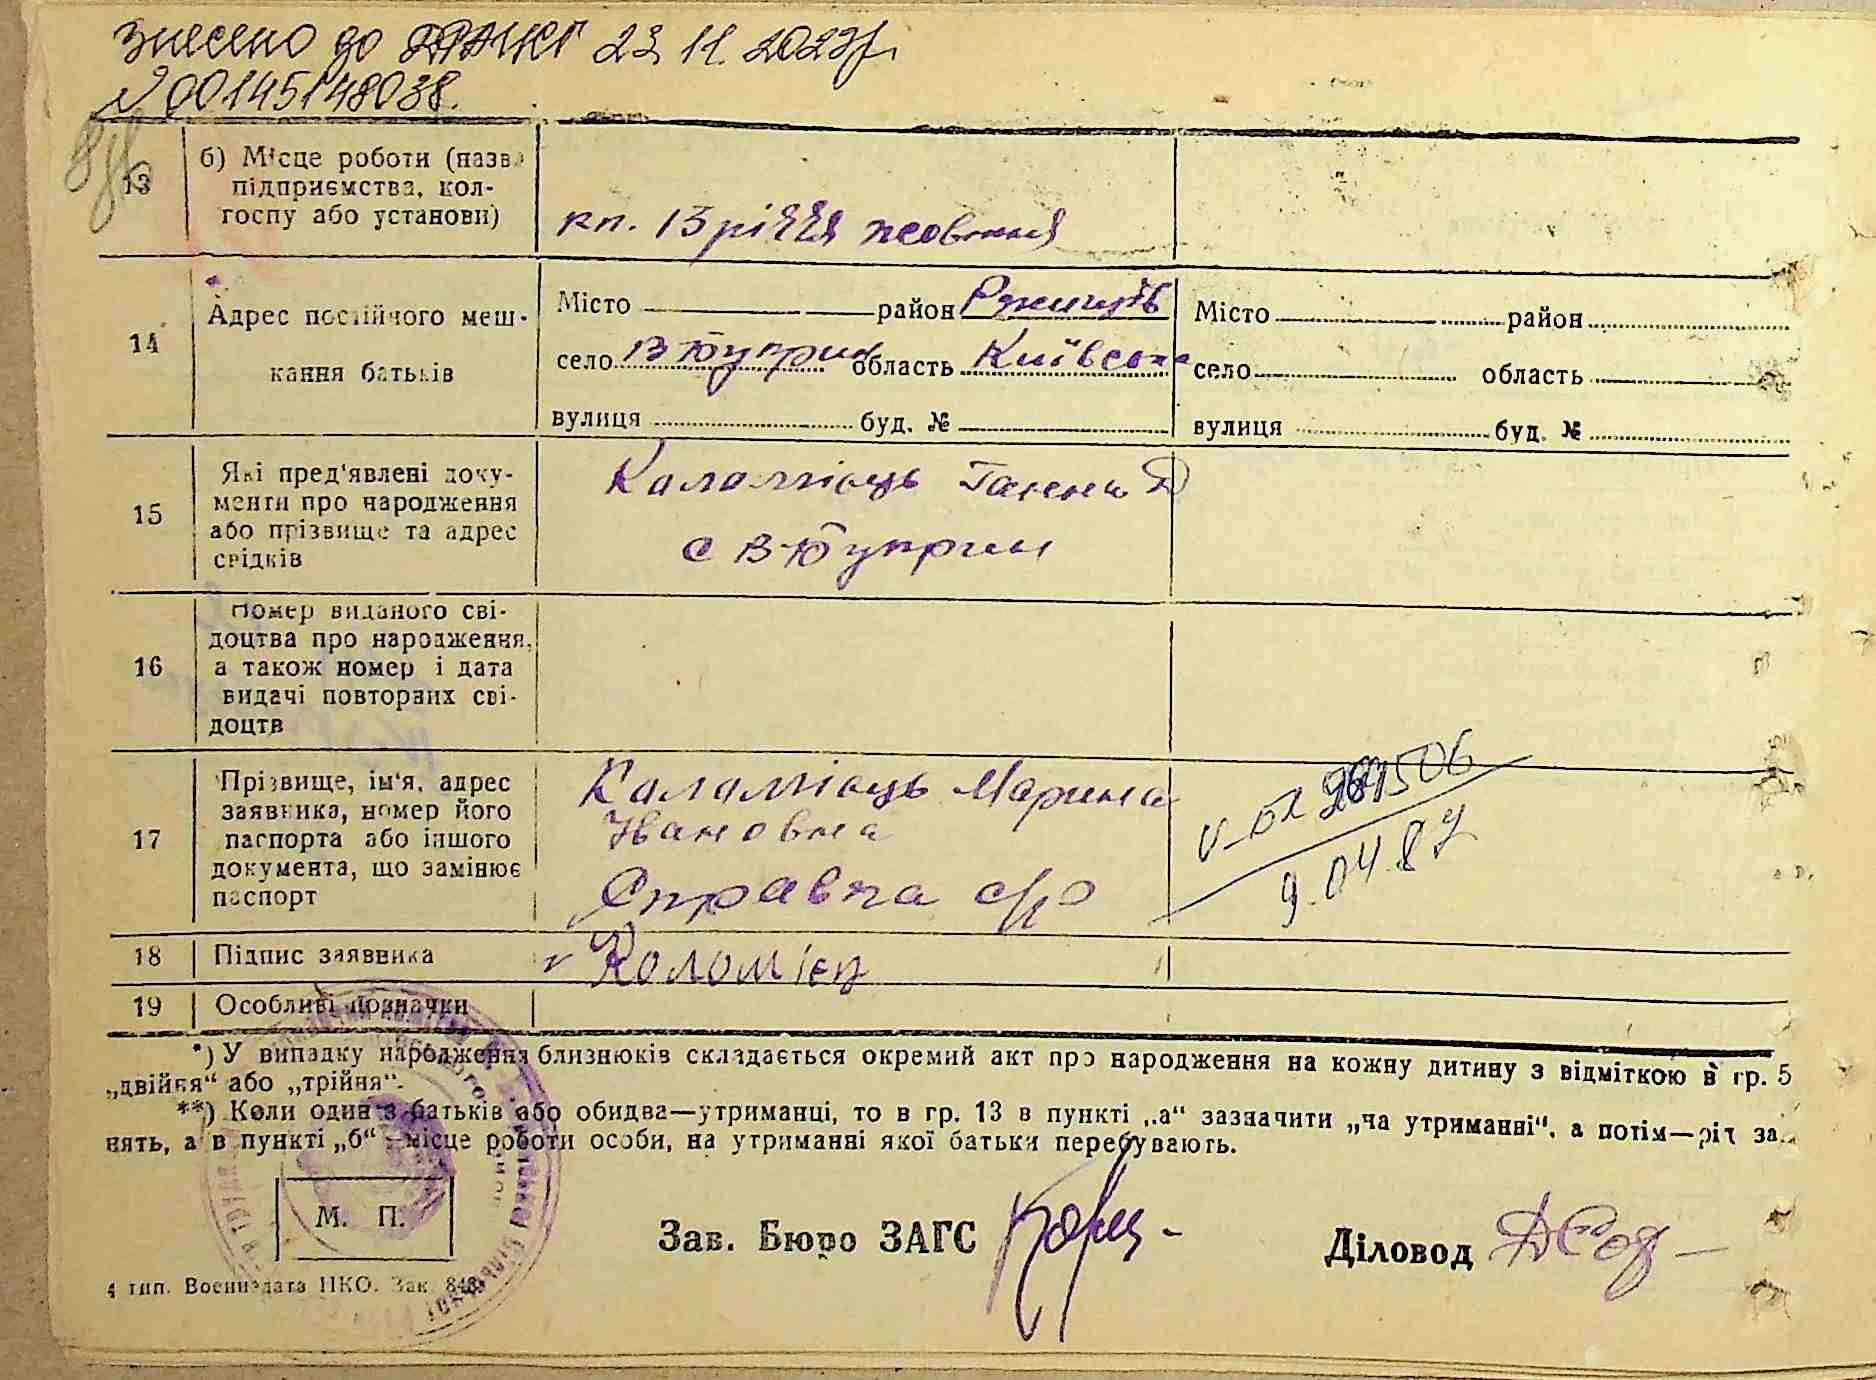 Внесено до ДРАЦСГ 23.11.2023р.
№00145148038.
13
б) Місце роботи (назва
підприємства, кол-
госпу або установи)
кп. 13 річчя жовтня
14
Адрес постійного меш-
кання батьків
Місто район Ржищів
село В Букрин область Київська
вулиця буд. №
Місто район
село область
вулиця буд. №
15
Які пред'явлені доку-
менти про народження
або прізвище та адрес
свідків
Каламієць Ганна Д
с В-Букрин
16
Номер виданого сві-
доцтва про народження,
а також номер і дата
видачі повторних сві-
доцтв
17
Прізвище, ім'я, адрес
заявника, номер його
паспорта або іншого
документа, що замінює
паспорт
Каламієць Марина
Івановна
Справка с/р
9.04.87
18
Підпис заявника
Коломієц
19
Особливі позначки
*) У випадку народження близнюків складається окремий акт про народження на кожну дитину з відміткою в гр. 5
„двійня“ або „трійня“.
**) Коли один з батьків або обидва—утриманці, то в гр. 13 в пункті „а“ зазначити „на утриманні“, а потім—рід за-
нять, а в пункті „б“—місце роботи особи, на утриманні якої батьки перебувають.
М. П.
Зав. Бюро ЗАГС
Діловод
4 тип. Воениздата НКО. Зак. 848